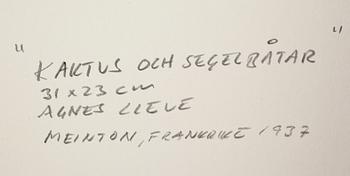 "KAKTUS OCH SEGELBÅTAR"
31 x 23 cm
AGNES CLEVE
MEINTON, FRANKRIKE 1937